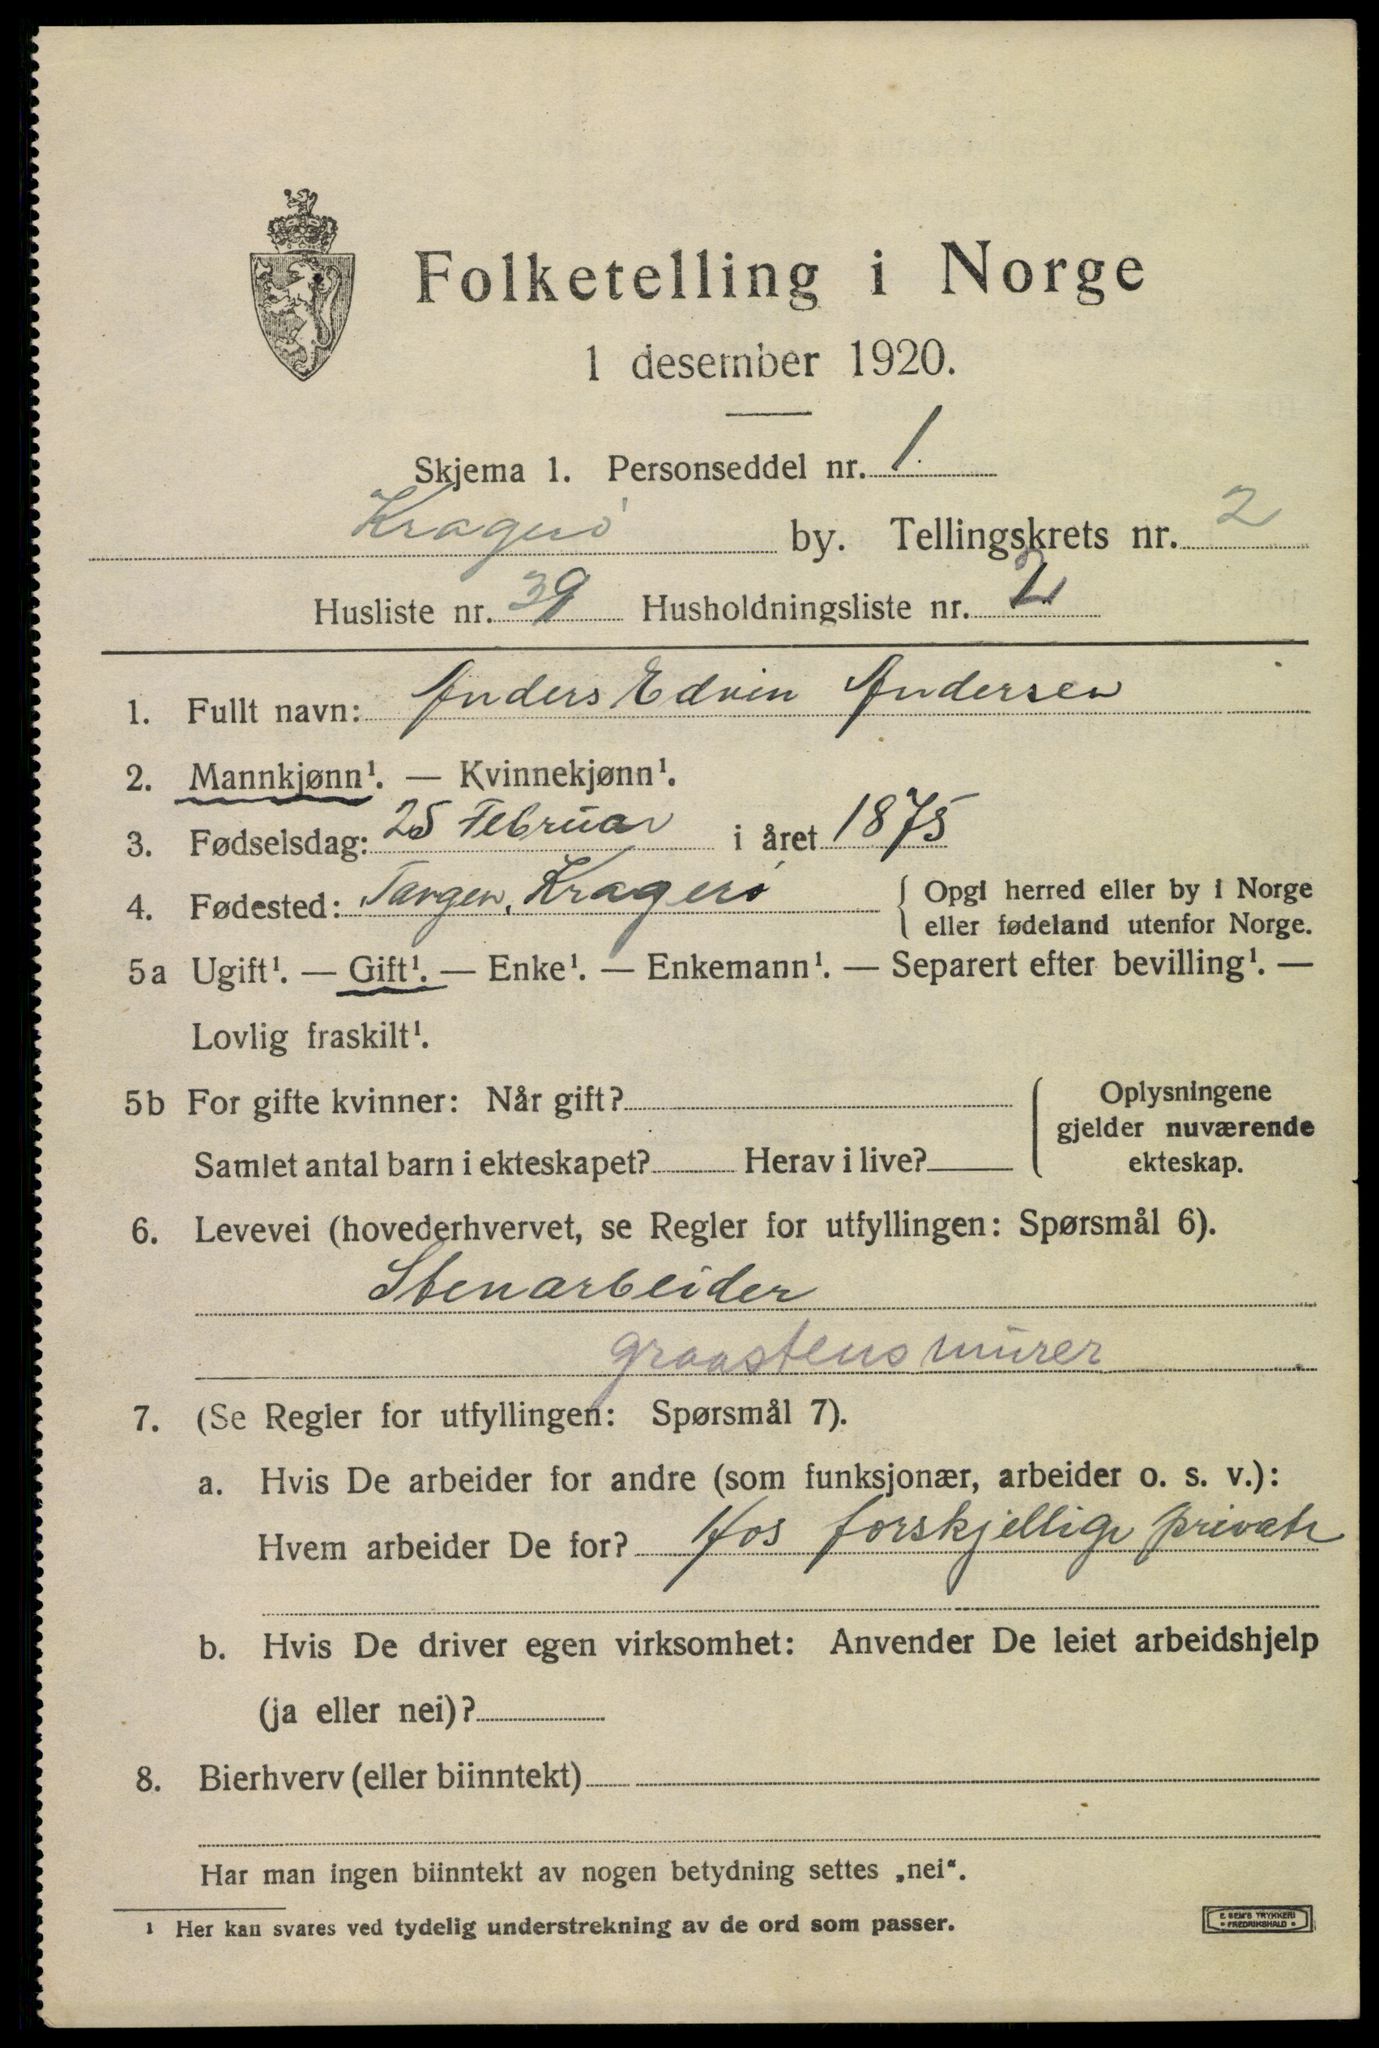 Folketelling i Norge
1 desember 1920.
Skjema 1. Personseddel nr. 1
Kragerø by. Tellingskrets nr. 2
Husliste nr. 39 Husholdningsliste nr. 2
1. Fullt navn: Anders Edvin Andersen
2. Mannkjønn¹. — Kvinnekjønn¹.
3. Fødselsdag: 25 Februar i året 1875
4. Fødested: Tangen, Kragerø { Opgi herred eller by i Norge
eller fødeland utenfor Norge.
5a Ugift¹. — Gift¹. — Enke¹. — Enkemann¹. — Separert efter bevilling¹. —
Lovlig fraskilt¹.
5b For gifte kvinner: Når gift?
Samlet antal barn i ekteskapet? Herav i live?
Oplysningene
gjelder nuværende
ekteskap.
6. Levevei (hovederhvervet, se Regler for utfyllingen: Spørsmål 6).
Stenarbeider
graastensmurer
7. (Se Regler for utfyllingen: Spørsmål 7).
a. Hvis De arbeider for andre (som funksjonær, arbeider o. s. v.):
Hvem arbeider De for? Hos forskjellige private
b. Hvis De driver egen virksomhet: Anvender De leiet arbeidshjelp
(ja eller nei)?
8. Bierhverv (eller biinntekt) —
Har man ingen biinntekt av nogen betydning settes „nei“.
¹ Her kan svares ved tydelig understrekning av de ord som passer.
E. SEM'S TRYKKERI
FREDRIKSHALD